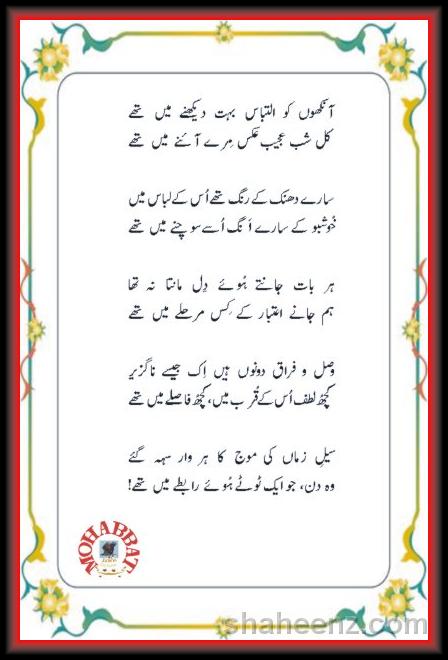 آنکھوں کو التباس بہت دیکھنے میں تھے
کل شب عجیب عکس مِرے آئنے میں تھے
سارے دھنک کے رنگ تھے اُس کے لباس میں
خُوشبو کے سارے اَنگ اُسے سوچنے میں تھے
ہر بات جانتے ہُوئے دِل مانتا نہ تھا
ہم جانے اعتبار کے کِس مرحلے میں تھے
وصل و فراق دونوں ہیں اِک جیسے ناگزیر
کچھ لطف اُس کے قُرب میں، کچھ فاصلے میں تھے
سیلِ زماں کی موج کا ہر وار سہہ گئے
وہ دن، جو ایک ٹوٹے ہُوئے رابطے میں تھے!
MOHABBAT
shaheenz.com